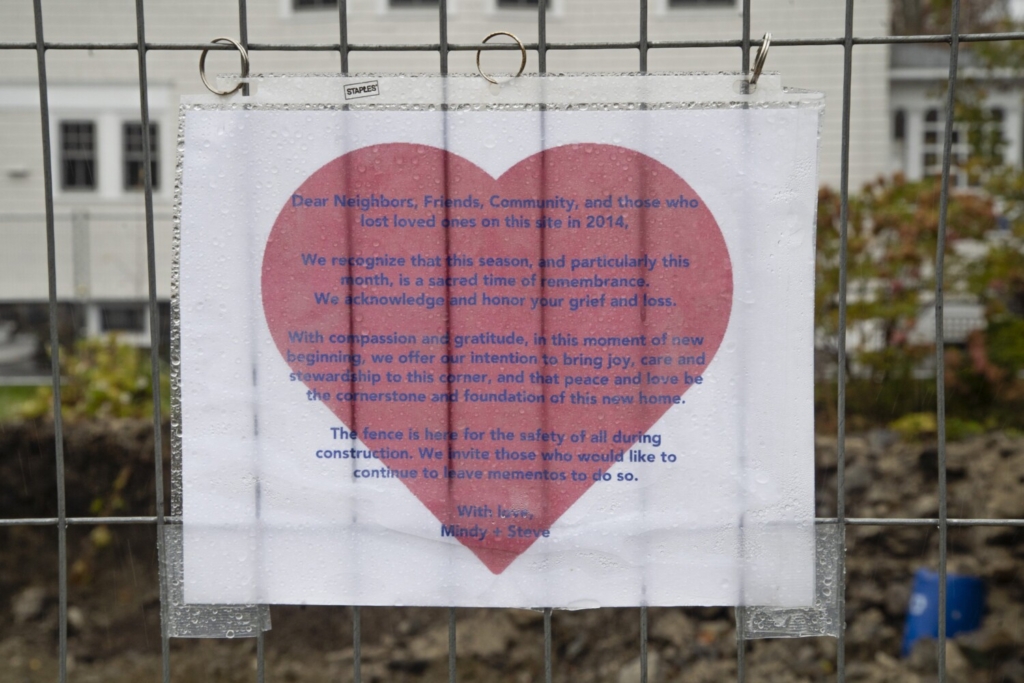 STAPLES
Dear Neighbors, Friends, Community, and those who
lost loved ones on this site in 2014,
We recognize that this season, and particularly this
month, is a sacred time of remembrance.
We acknowledge and honor your grief and loss.
With compassion and gratitude, in this moment of new
beginning, we offer our intention to bring joy, care and
stewardship to this corner, and that peace and love be
the cornerstone and foundation of this new home.
The fence is here for the safety of all during
construction. We invite those who would like to
continue to leave mementos to do so.
With love,
Mindy + Steve